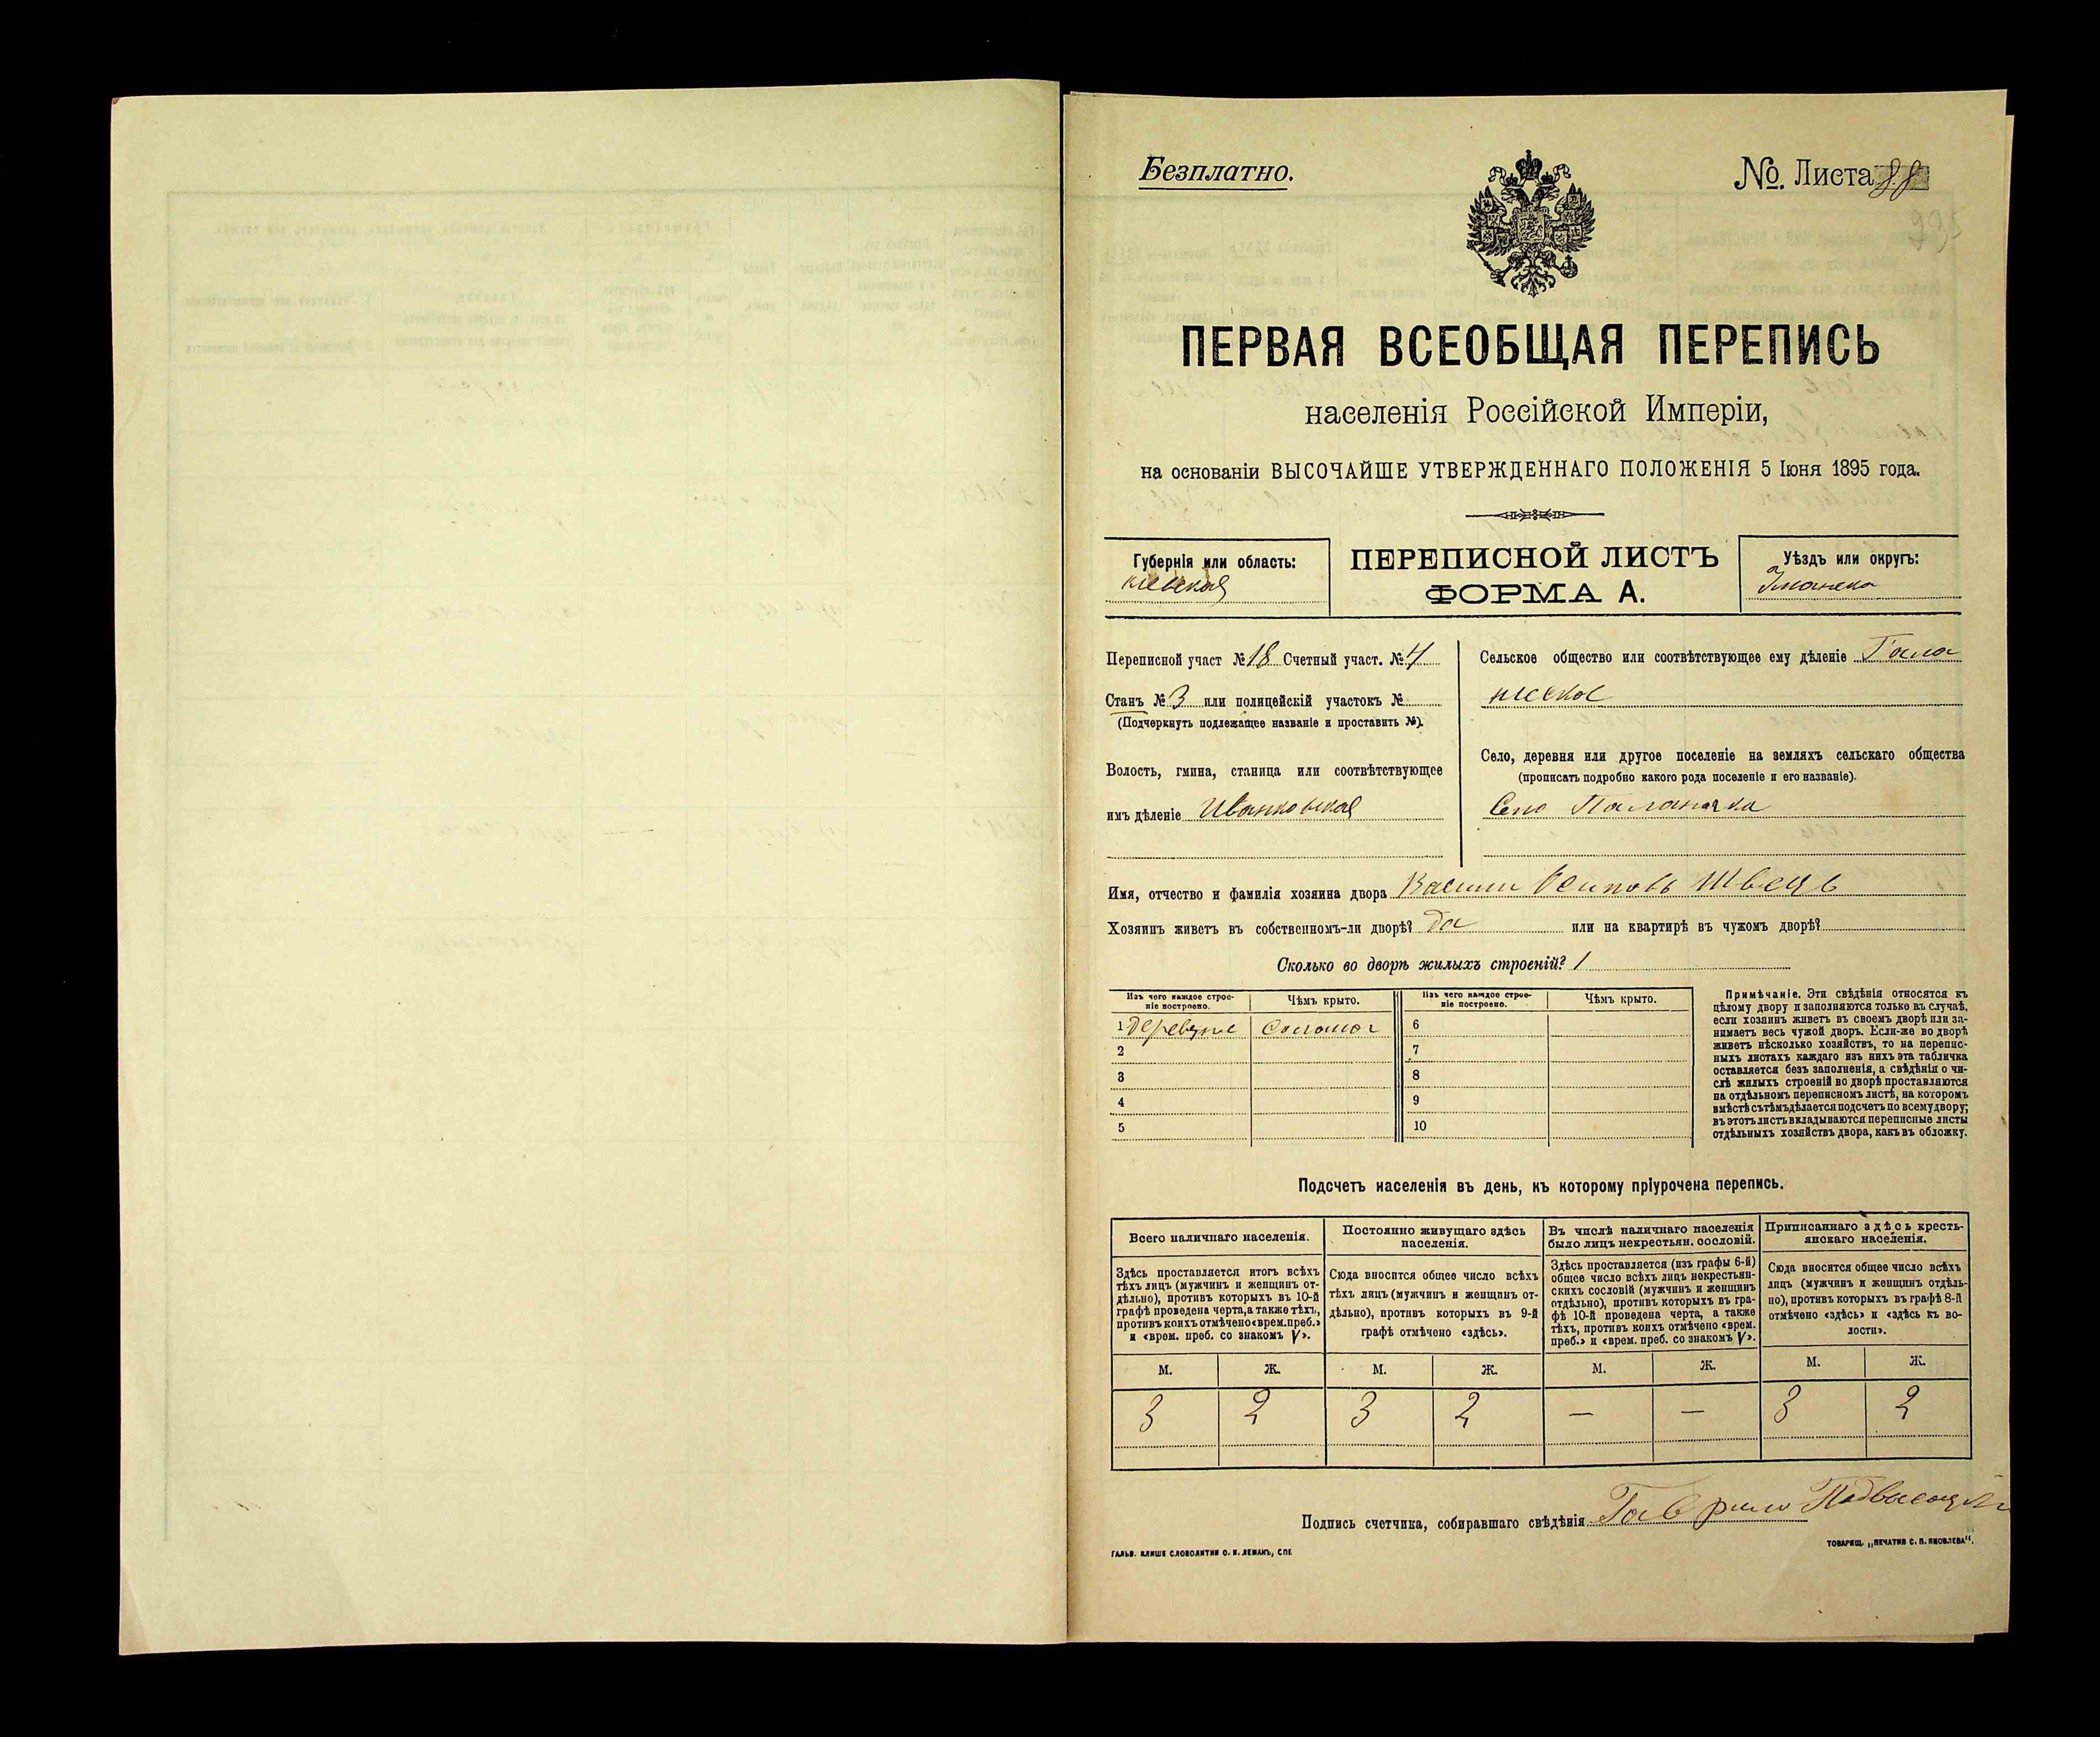 Безплатно.
№. Листа 88
ПЕРВАЯ ВСЕОБЩАЯ ПЕРЕПИСЬ
населенія Россійской Имперіи,
на основаніи ВЫСОЧАЙШЕ УТВЕРЖДЕННАГО ПОЛОЖЕНІЯ 5 Іюня 1895 года.
Губернія или область:
Кіевская
ПЕРЕПИСНОЙ ЛИСТЪ
ФОРМА А.
Уѣздъ или округъ:
Уманск
Переписной участ № 18 Счетный участ. № 4
Станъ № 3 или полицейскій участокъ №
(Подчеркнуть подлежащее названіе и проставить №).
Волость, гмина, станица или соотвѣтствующее
имъ дѣленіе Иваньковская
Сельское общество или соотвѣтствующее ему дѣленіе
Село, деревня или другое поселеніе на земляхъ сельскаго общества
(прописать подробно какого рода поселеніе и его названіе).
Село Паланочка
Имя, отчество и фамилія хозяина двора Василий Осиповъ Швецъ
Хозяинъ живетъ въ собственномъ-ли дворѣ? да или на квартирѣ въ чужомъ дворѣ?
Сколько во дворѣ жилыхъ строеній? 1
Изъ чего каждое строе-
ніе построено.
Чѣмъ крыто.
Изъ чего каждое строе-
ніе построено.
Чѣмъ крыто.
1 деревяне соломой 6
2 7
3 8
4 9
5 10
Примѣчаніе. Эти свѣдѣнія относятся къ
цѣлому двору и заполняются только въ случаѣ,
если хозяинъ живетъ въ своемъ дворѣ или за-
нимаетъ весь чужой дворъ. Если-же во дворѣ
живетъ нѣсколько хозяйствъ, то на перепис-
ныхъ листахъ каждаго изъ нихъ эта табличка
оставляется безъ заполненія, а свѣдѣнія о чи-
слѣ жилыхъ строеній во дворѣ проставляются
на отдѣльномъ переписномъ листѣ, на которомъ
вмѣстѣ съ тѣмъ дѣлается подсчетъ по всему двору;
въ этотъ листъ вкладываются переписные листы
отдѣльныхъ хозяйствъ двора, какъ въ обложку.
Подсчетъ населенія въ день, къ которому пріурочена перепись.
Всего наличнаго населенія.
Здѣсь проставляется итогъ всѣхъ
тѣхъ лицъ (мужчинъ и женщинъ от-
дѣльно), противъ которыхъ въ 10-й
графѣ проведена черта, а также тѣхъ,
противъ коихъ отмѣчено «врем. преб.»
и «врем. преб. со знакомъ V».
Постоянно живущаго здѣсь
населенія.
Сюда вносится общее число всѣхъ
тѣхъ лицъ (мужчинъ и женщинъ от-
дѣльно), противъ которыхъ въ 9-й
графѣ отмѣчено «здѣсь».
Въ числѣ наличнаго населенія
было лицъ некрестьян. сословій.
Здѣсь проставляется (изъ графы 6-й)
общее число всѣхъ лицъ некрестьян-
скихъ сословій (мужчинъ и женщинъ
отдѣльно), противъ которыхъ въ гра-
фѣ 10-й проведена черта, а также
тѣхъ, противъ коихъ отмѣчено «врем.
преб.» и «врем. преб. со знакомъ V».
Приписаннаго здѣсь кресть-
янскаго населенія.
Сюда вносится общее число всѣхъ
лицъ (мужчинъ и женщинъ отдѣль-
но), противъ которыхъ въ графѣ 8-й
отмѣчено «здѣсь» и «здѣсь къ во-
лости».
М. Ж. М. Ж. М. Ж. М. Ж.
3 2 3 2 — — 3 2
Подпись счетчика, собиравшаго свѣдѣнія Гаврило
ГАЛЬВ. КЛИШЕ СЛОВОЛИТНИ О. И. ЛЕМАНЪ, СПБ
ТОВАРИЩ. „ПЕЧАТНЯ С. П. ЯКОВЛЕВА".